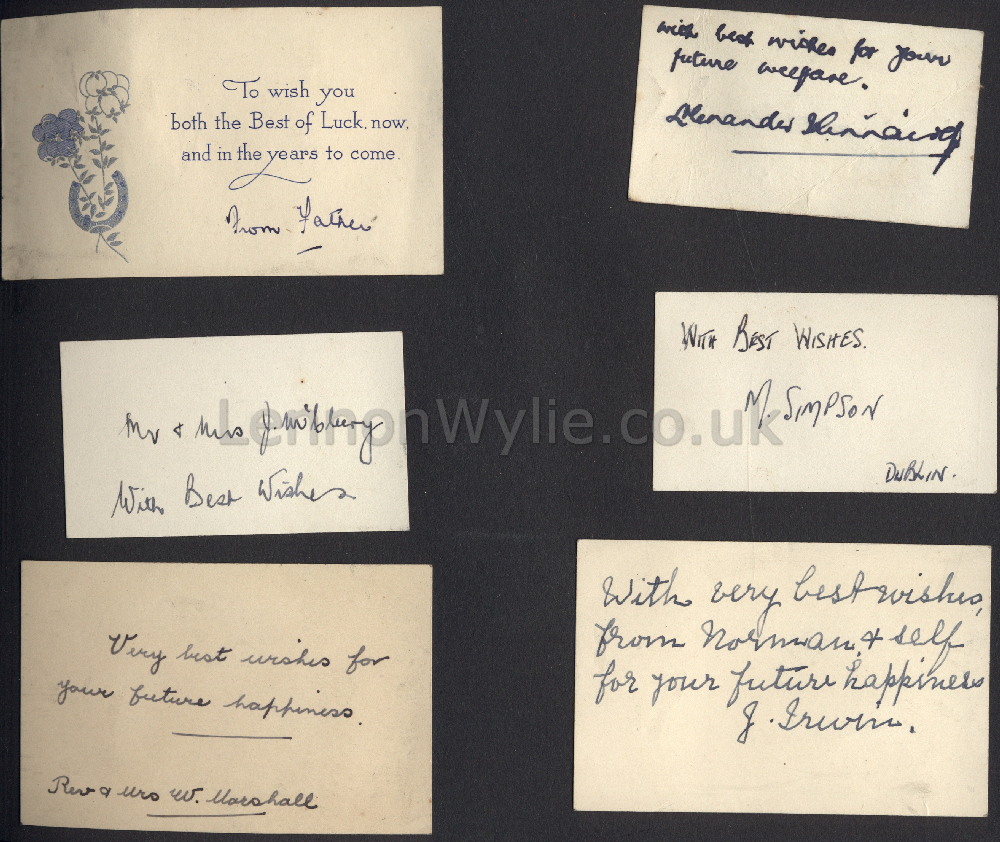 To wish you
both the Best of Luck, now,
and in the years to come.
From Father
with best wishes for your
future welfare.
Alexander
Mr & Mrs J.
With Best Wishes
WITH BEST WISHES.
M. SIMPSON
DUBLIN.
Very best wishes for
your future happiness.
Rev & Mrs W. Marshall
With very best wishes,
from Norman & self
for your future happiness
J. Irwin.
LennonWylie.co.uk